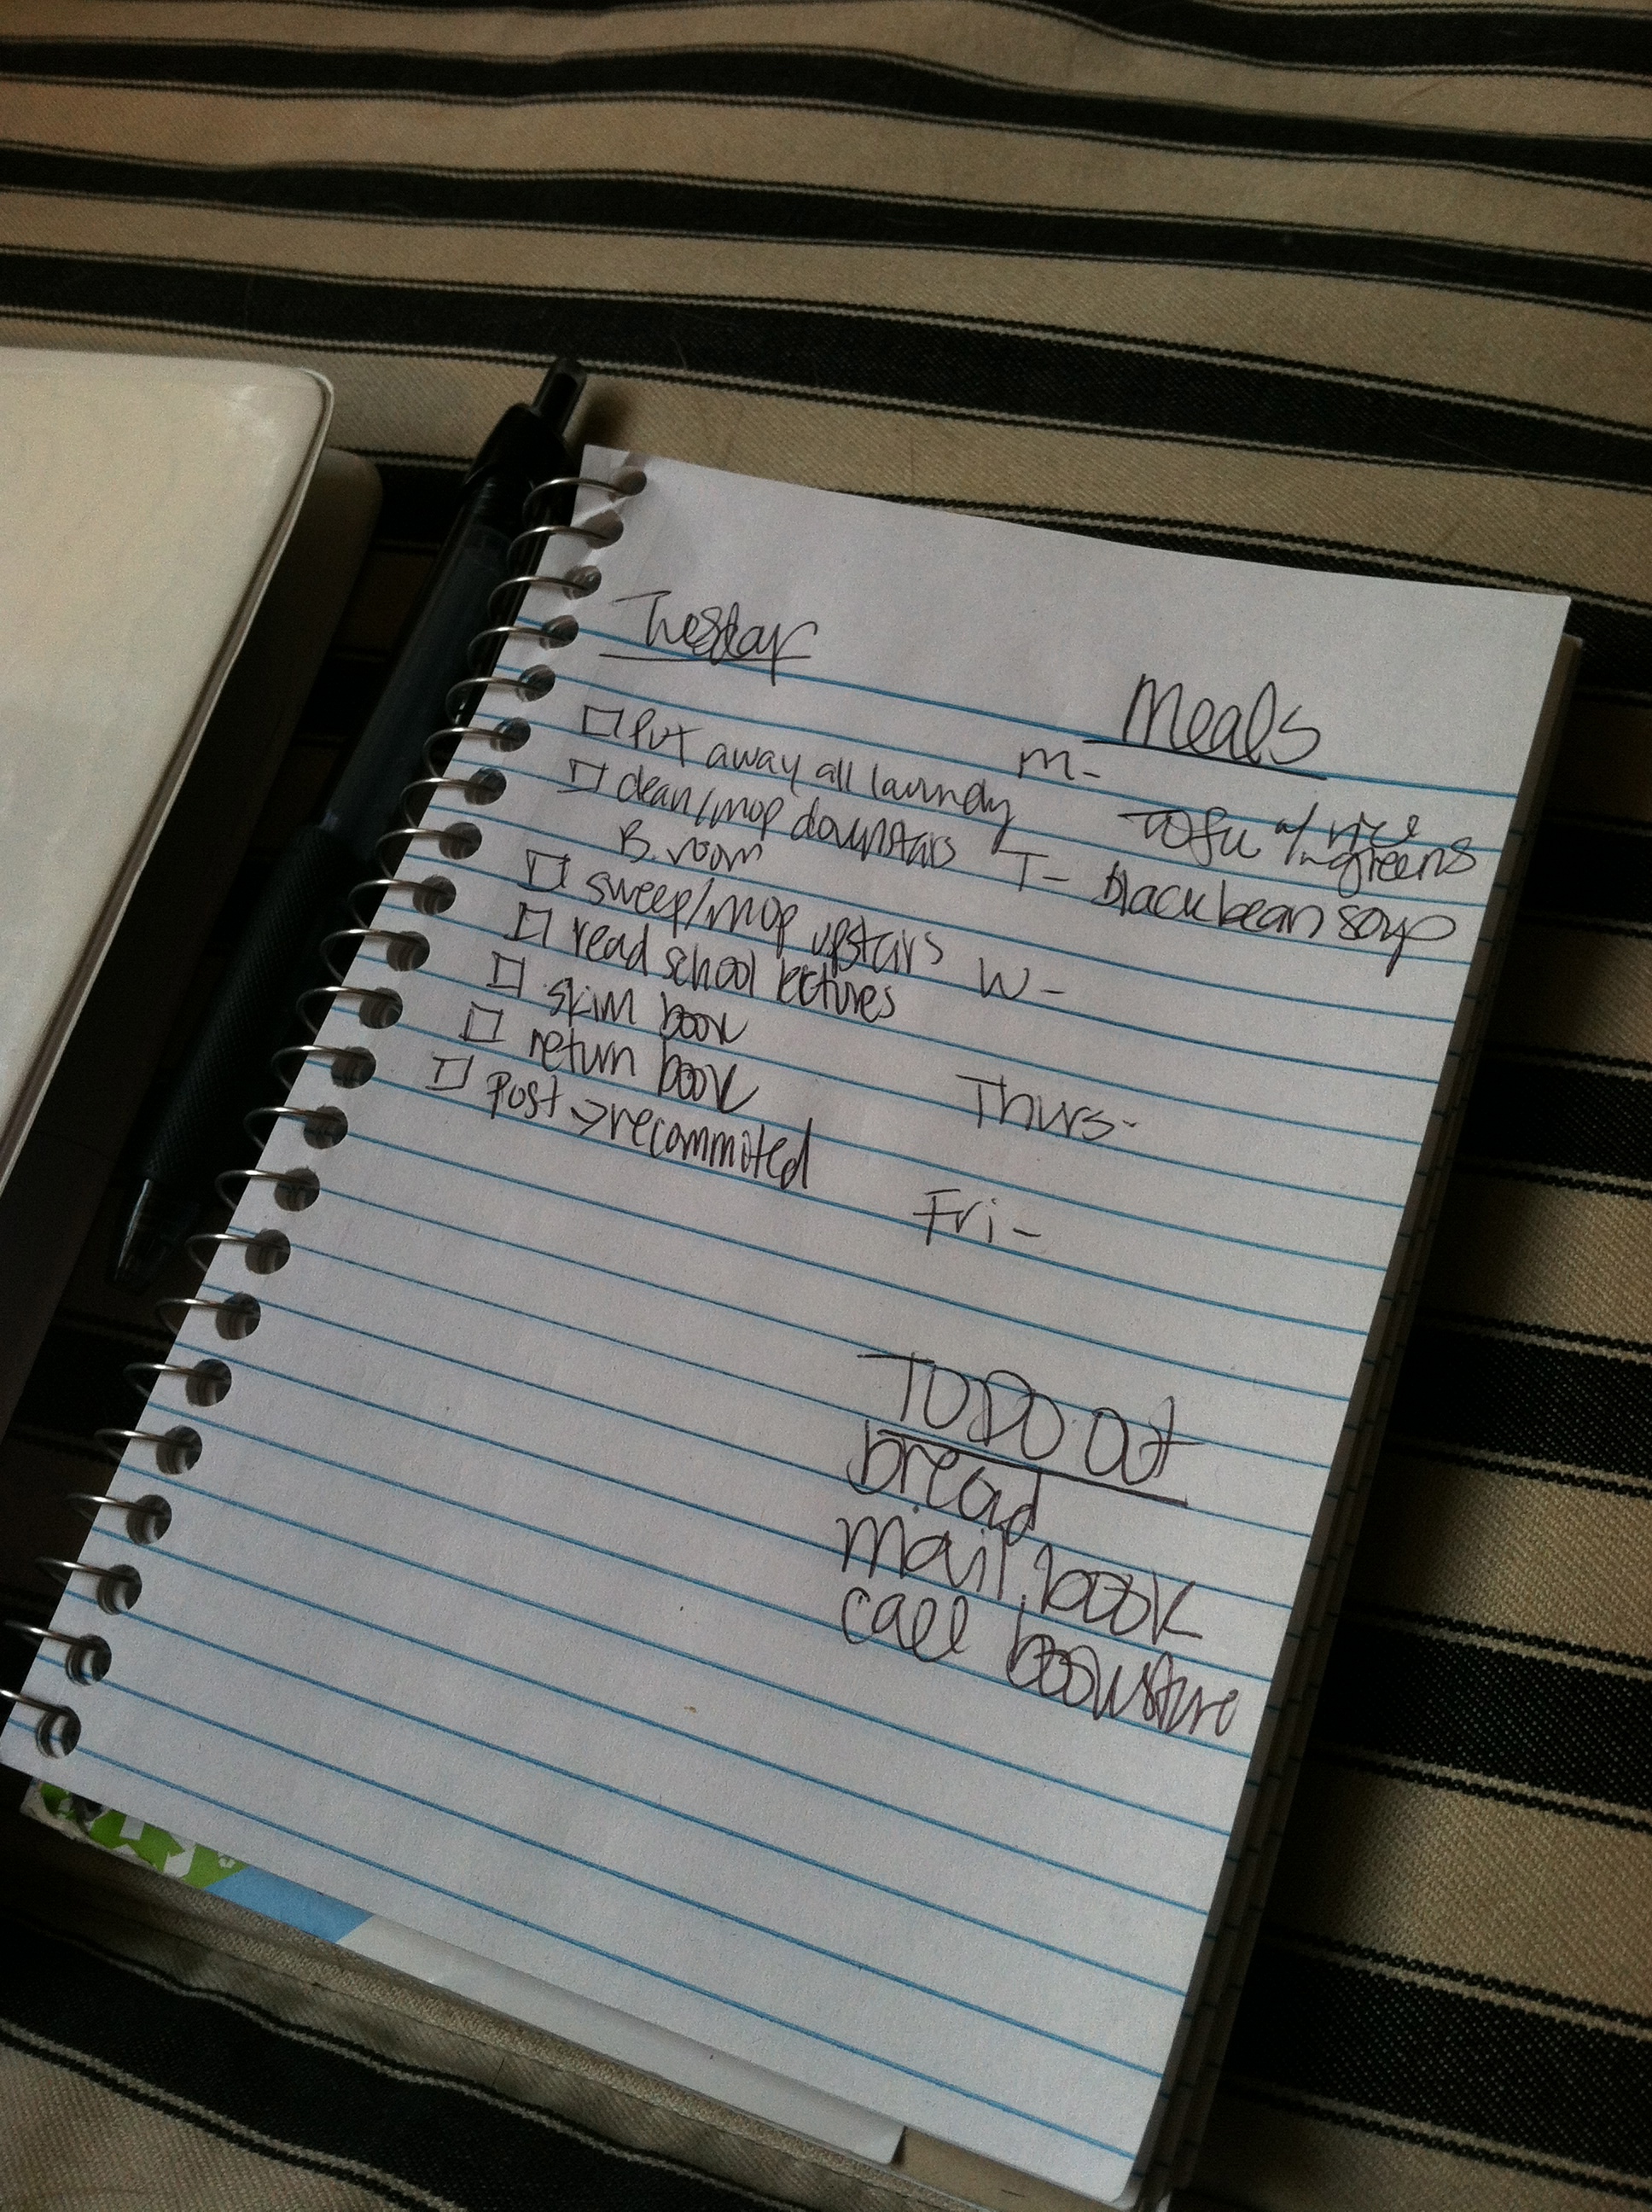 Tuesday
☐ Put away all laundry
☐ clean/mop downstairs
B. room
☐ sweep/mop upstairs
☐ read school lectures
☐ skim book
☐ return book
☐ Post -> recommited
Meals
M-
Tofu w/ rice
greens
T- black bean soup
W-
Thurs-
Fri-
TO DO Out
bread
mail book
call bookstore